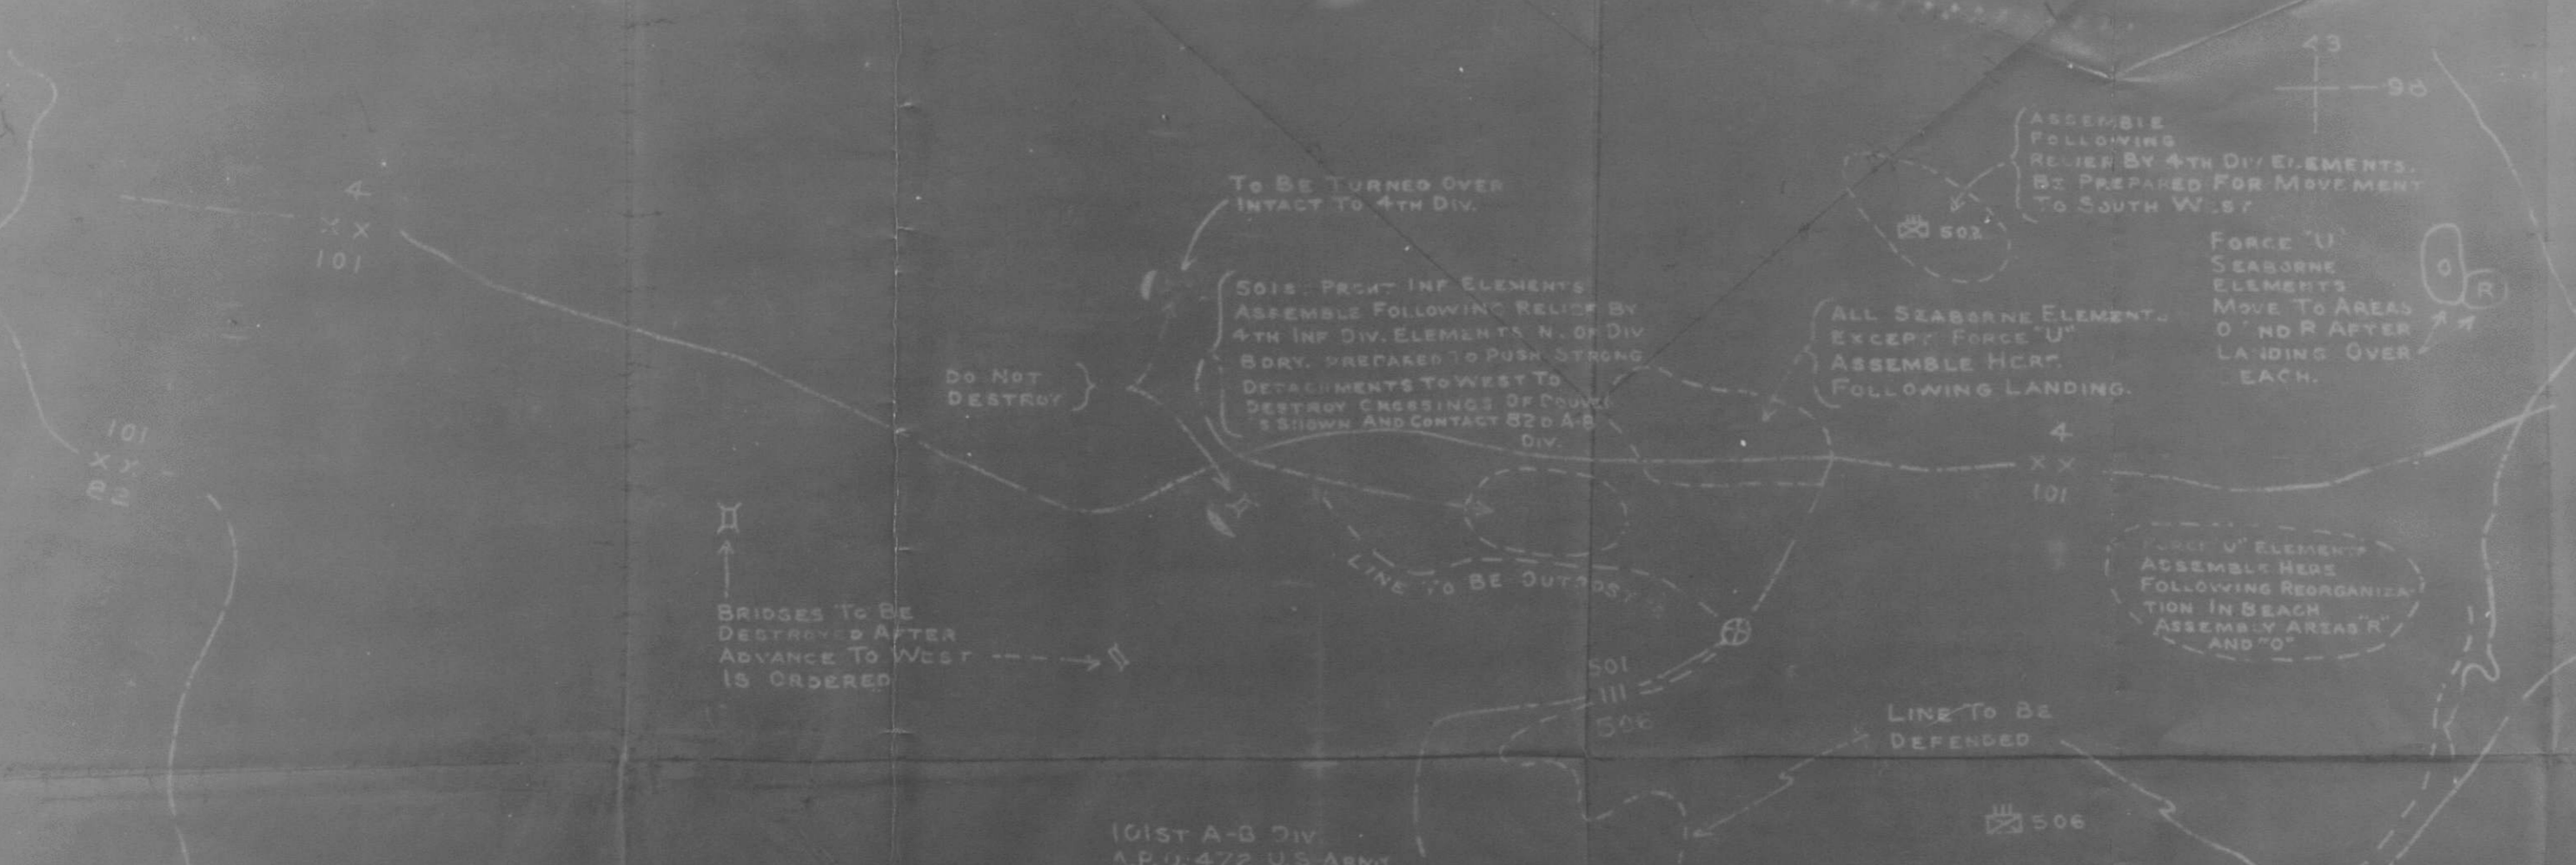 43
98
ASSEMBLE
FOLLOWING
RELIEF BY 4TH DIV ELEMENTS.
BE PREPARED FOR MOVEMENT
TO SOUTH WEST
502
4
X X
101
TO BE TURNED OVER
INTACT TO 4TH DIV.
FORCE "U"
SEABORNE
ELEMENTS
MOVE TO AREAS
O ND R AFTER
LANDING OVER
EACH.
O
R
501ST PRCHT INF ELEMENTS
ASSEMBLE FOLLOWING RELIEF BY
4TH INF DIV. ELEMENTS N. OF DIV
BDRY. PREPARED TO PUSH STRONG
DETACHMENTS TO WEST TO
DESTROY CROSSINGS OF DOUVE
S SHOWN AND CONTACT 82D A-B
DIV.
DO NOT
DESTROY
ALL SEABORNE ELEMENT
EXCEPT FORCE "U"
ASSEMBLE HERE
FOLLOWING LANDING.
101
X X
82
4
X X
101
FORCE "U" ELEMENTS
ASSEMBLE HERE
FOLLOWING REORGANIZA-
TION IN BEACH
ASSEMBLY AREAS "R"
AND "O"
LINE TO BE OUTPOST
BRIDGES TO BE
DESTROYED AFTER
ADVANCE TO WEST
IS ORDERED
501
111
506
LINE TO BE
DEFENDED
506
101ST A-B DIV
A.P.O. 472 U.S. ARMY